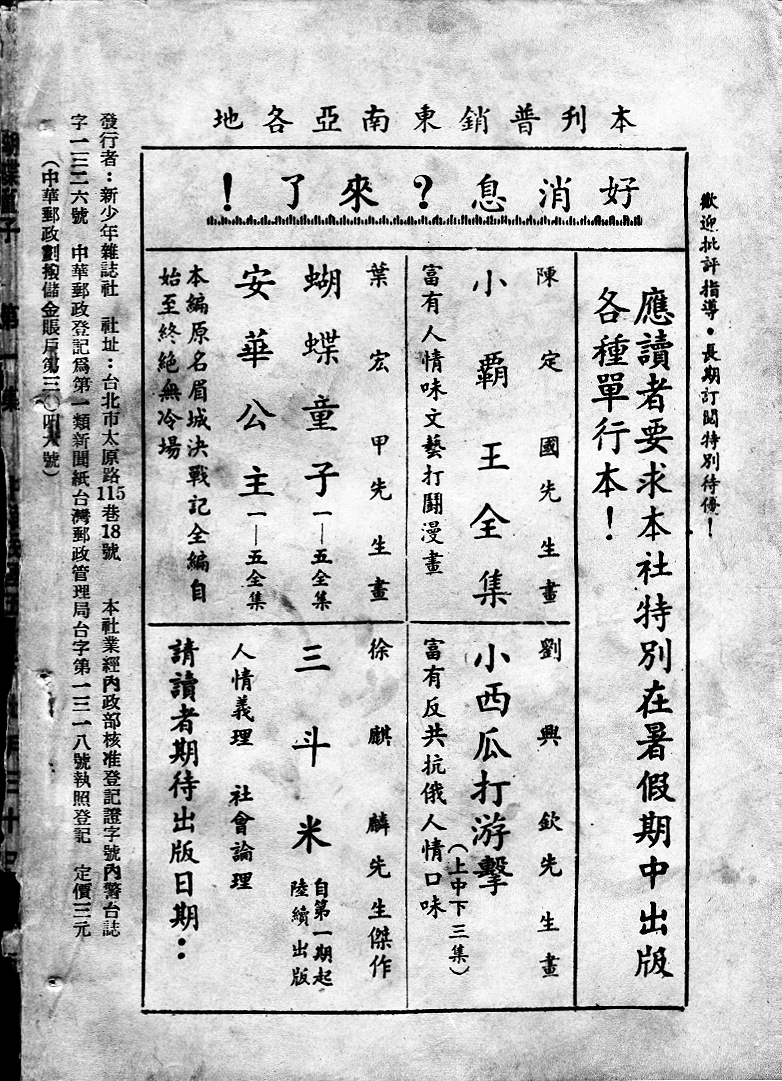 本刊普銷東南亞各地
歡迎批評指導·長期訂閱特別待優!
好消息?來了!
應讀者要求本社特別在暑假期中出版
各種單行本!
陳定國先生畫
小霸王全集
富有人情味文藝打鬪漫畫
葉宏甲先生畫
蝴蝶童子 一—五全集
安華公主 一—五全集
本編原名眉城決戰記全編自
始至終絕無冷場
劉興欽先生畫
小西瓜打游擊
(上中下三集)
富有反共抗俄人情口味
徐麒麟先生傑作
三斗米 自第一期起
陸續出版
人情義理 社會論理
請讀者期待出版日期:
發行者:新少年雜誌社 社址:台北市太原路115巷18號 本社業經內政部核准登記證字號內警台誌
字一三二六號 中華郵政登記爲第一類新聞紙台灣郵政管理局台字第一三一八號執照登記 定價三元
(中華郵政劃撥儲金賬戶第三〇四六號)
蝴蝶童子 第一集